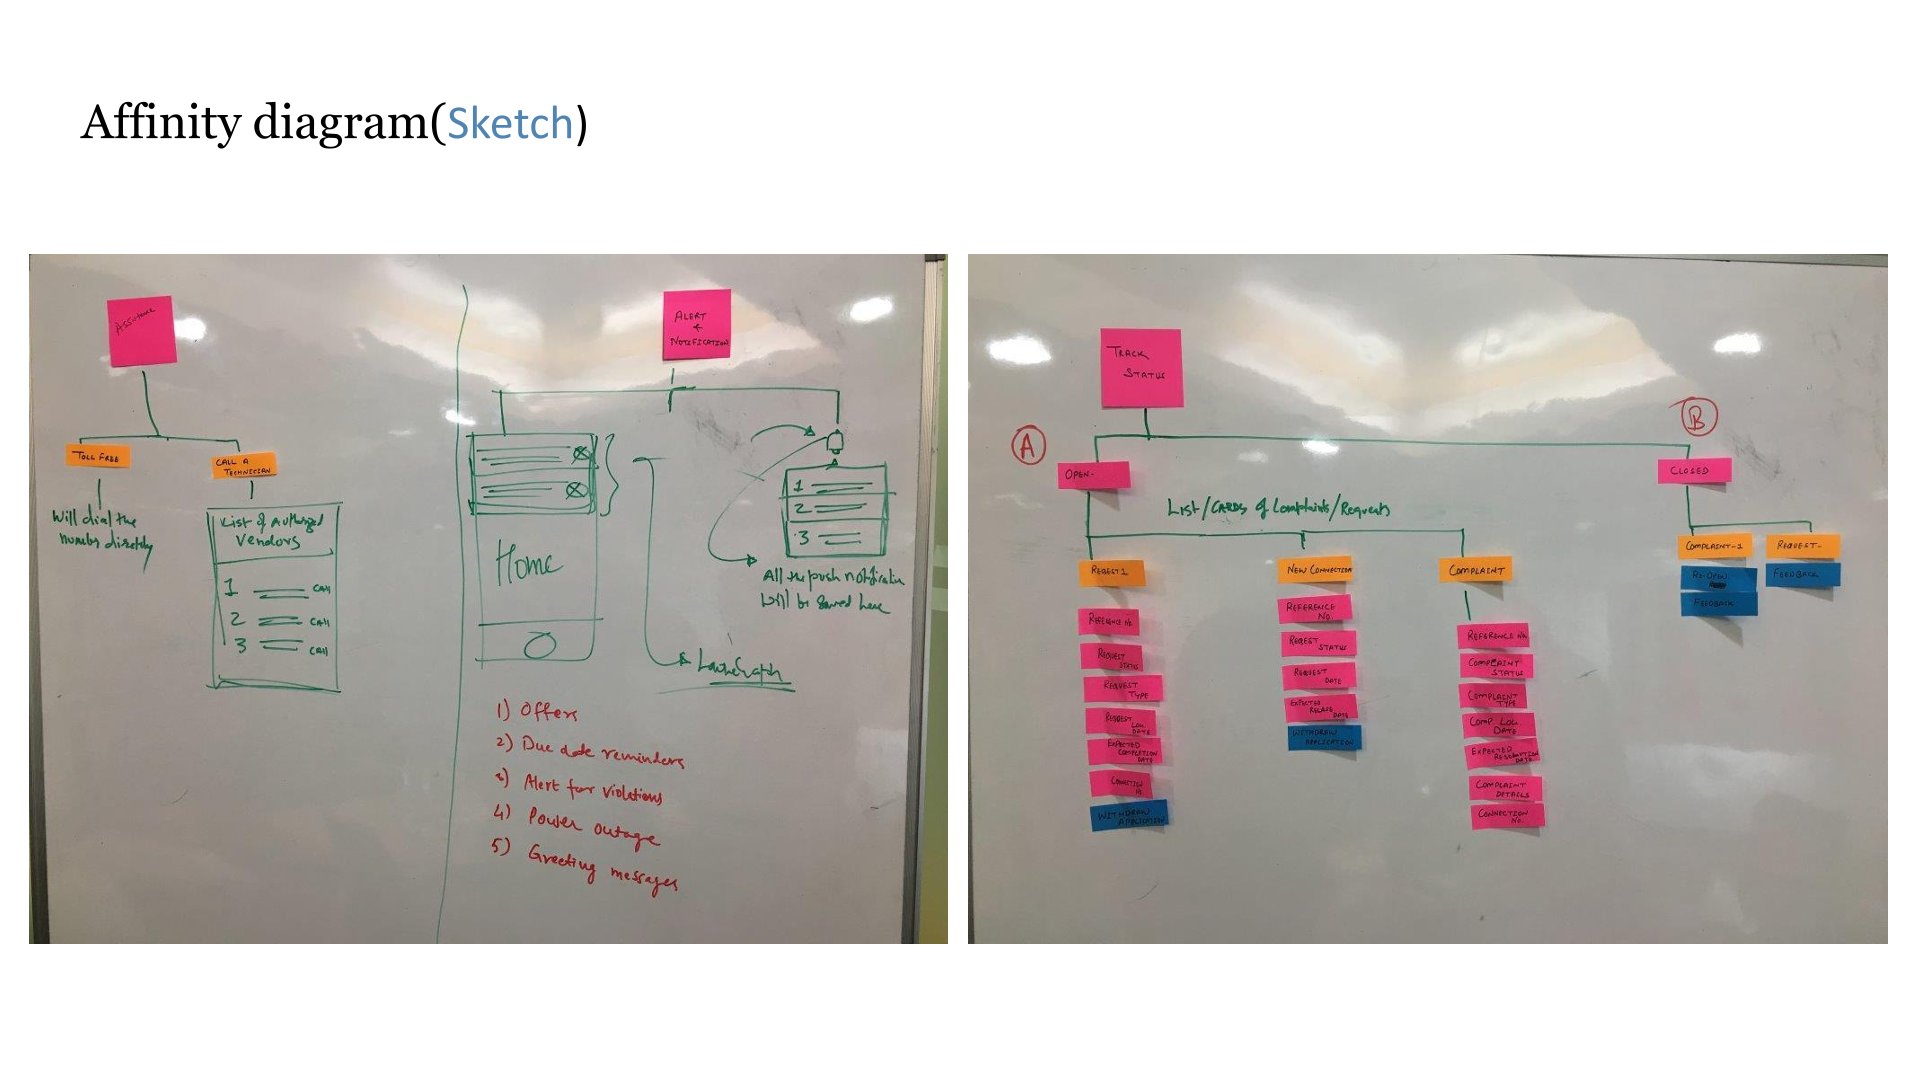 Affinity diagram(Sketch)
ALERT
&
NOTIFICATION
TOLL FREE
CALL A
TECHNICIAN
Will dial the
number directly
List of authorized
Vendors
1 CALL
2 CALL
3 CALL
Home
1
2
3
All the push notification
will be saved here
1) Offers
2) Due date reminders
3) Alert for violations
4) Power outage
5) Greeting messages
TRACK
STATUS
A
B
OPEN-
CLOSED
LIST/CARDS of Complaints/Requests
REQEST 1
REFERENCE No.
REQUEST
STATUS
REQUEST
TYPE
REQUEST
LOG.
DATE
EXPECTED
COMPLETION
DATE
CONNECTION
No.
WITHDRAW
APPLICATION
NEW CONNECTION
REFERENCE
No.
REQEST
STATUS
REQUEST
DATE
EXPECTED
RELEASE
DATE
WITHDRAW
APPLICATION
COMPLAINT
REFERENCE No.
COMPLAINT
STATUS
COMPLAINT
TYPE
COMP. LOG.
DATE
EXPECTED
RESOLUTION
DATE
COMPLAINT
DETAILS
CONNECTION
No.
COMPLAINT-1
RE-OPEN
FEEDBACK
REQUEST-
FEEDBACK